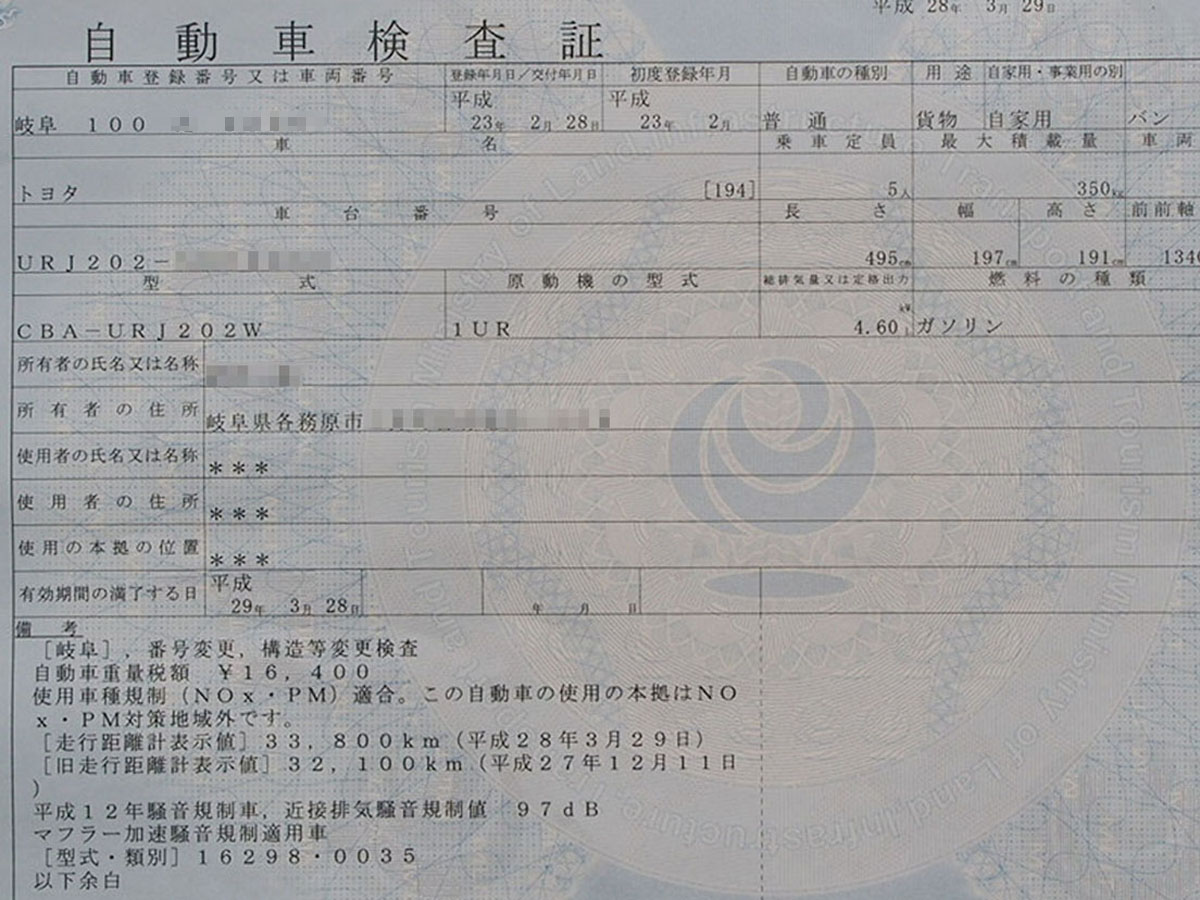 平成 28年 3月 29日
自動車検査証
自動車登録番号又は車両番号 登録年月日/交付年月日 初度登録年月 自動車の種別 用途 自家用・事業用の別
岐阜 100 平成 23年 2月 28日 平成 23年 2月 普通 貨物 自家用 バン
車名 乗車定員 最大積載量 車両
トヨタ [194] 5人 350kg
車台番号 長さ 幅 高さ 前前軸
URJ202- 495cm 197cm 191cm
型式 原動機の型式 総排気量又は定格出力 燃料の種類
CBA-URJ202W 1UR 4.60 kW L ガソリン
所有者の氏名又は名称
所有者の住所 岐阜県各務原市
使用者の氏名又は名称 ***
使用者の住所 ***
使用の本拠の位置 ***
有効期間の満了する日 平成 29年 3月 28日 年 月 日
備考
[岐阜],番号変更,構造等変更検査
自動車重量税額 ¥16,400
使用車種規制(NOx・PM)適合。この自動車の使用の本拠はNO
x・PM対策地域外です。
[走行距離計表示値]33,800km(平成28年3月29日)
[旧走行距離計表示値]32,100km(平成27年12月11日
)
平成12年騒音規制車,近接排気騒音規制値 97dB
マフラー加速騒音規制適用車
[型式・類別]16298・0035
以下余白